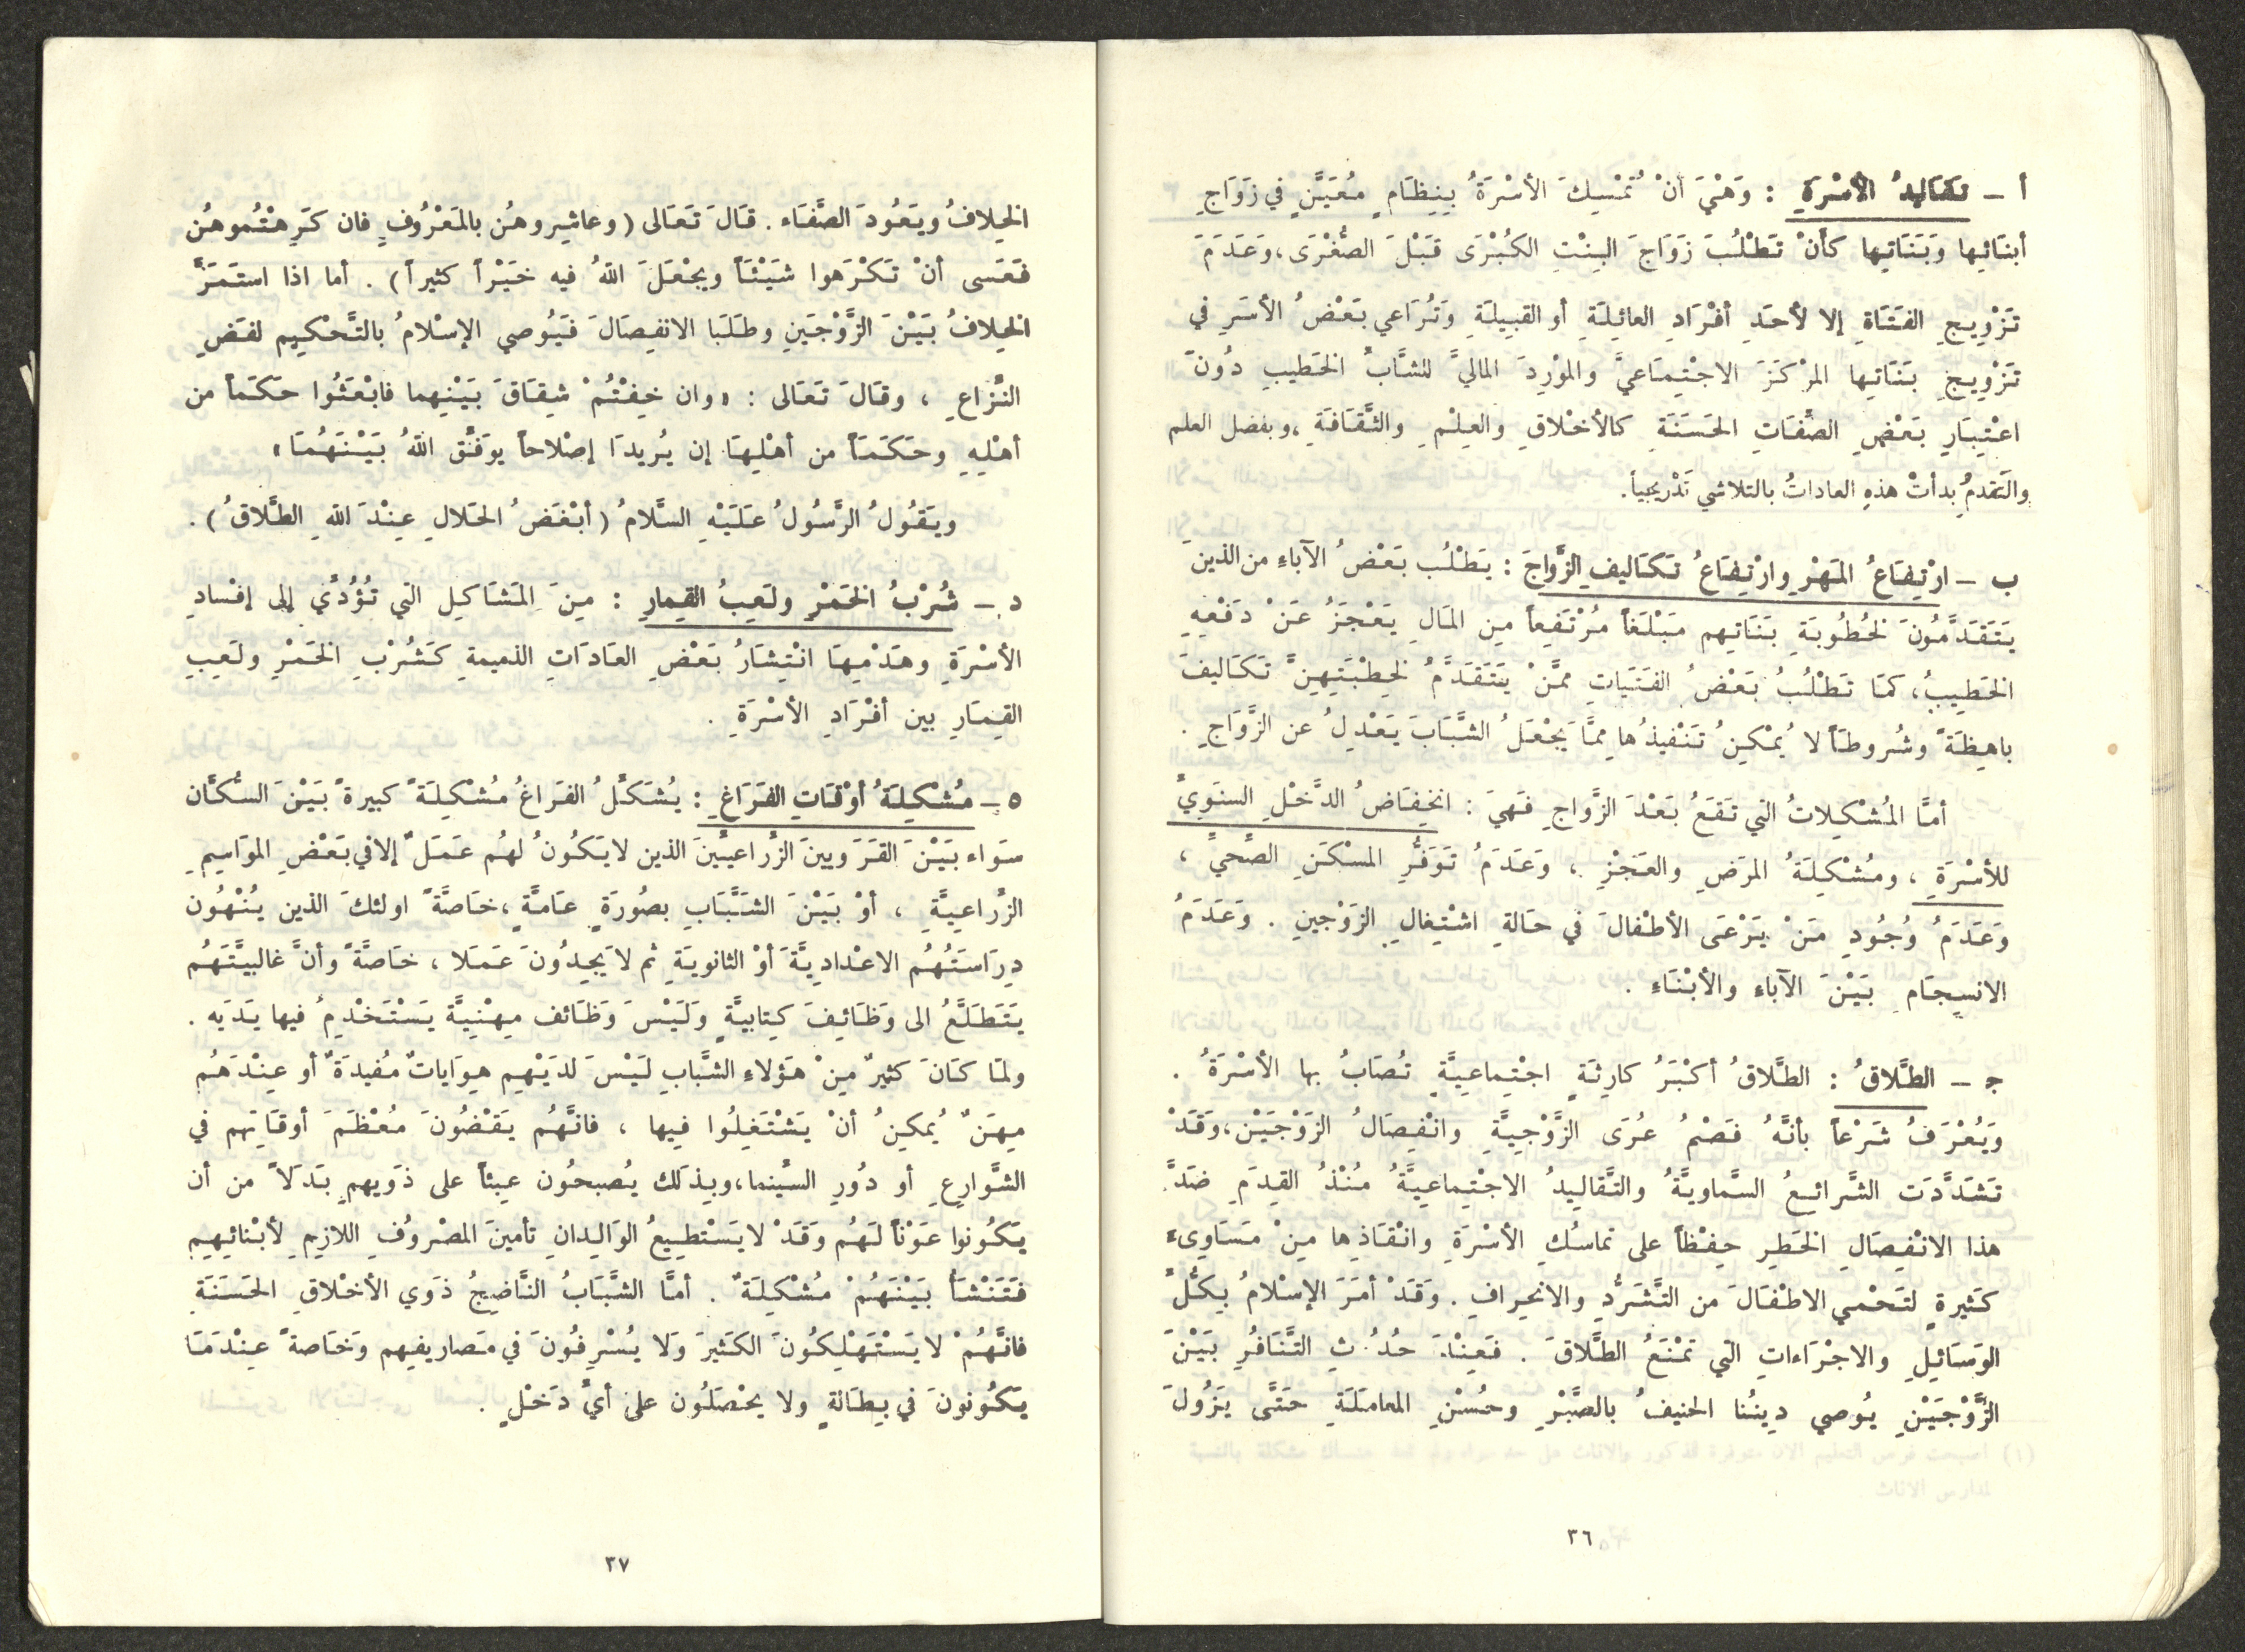 أ ـ تقاليدُ الأسْرَةِ : وَهْيَ أنْ تَمْسِكَ الأسْرَةُ بِنِظَامٍ مُعَيَّنٍ في زَوَاجِ
أبنَائِها وَبَنَاتِها كأنْ تَطْلُبَ زَوَاجَ البِنْتِ الكُبْرَى قَبْلَ الصُّغْرَى ، وَعَدَمَ
تَزْوِيجِ الفَتَاةِ إلا لأحَدِ أفْرَادِ العائِلَةِ أو القَبِيلَةِ وَتُرَاعي بَعْضُ الأسَرِ في
تَزْوِيجِ بَنَاتِها المرْكَزَ الاجْتِمَاعيَّ والموْرِدَ الماليَّ للشَّابِّ الخَطيبِ دُونَ
اعْتِبَارِ بَعْضِ الصِّفَاتِ الحَسَنَةِ كالأخْلاقِ والعِلْمِ والثَّقَافَةِ ، وبفضل العلم
والتَقدمُ بدأتْ هذهِ العاداتُ بالتلاشي تَدْريجياً .
ب ـ ارْتِفَاعُ المَهْرِ وارْتِفَاعُ تَكَاليفِ الزَّواجَ : يَطْلُب بَعْضُ الآباءِ من الذينَ
يَتَقَدَّمُونَ لخُطُوبَةِ بَنَاتِهم مَبْلَغاً مُرْتَفِعاً مِن المَالِ يَعْجَزُ عَنْ دَفْعِهِ
الخَطِيبُ ، كمَا تَطْلُبُ بَعْضُ الفَتَيَاتِ ممَّنْ يَتَقَدَّمُ لخِطْبَتِهِنَّ تَكَاليفَ
باهِظَةً وشُروطاً لا يُمْكِنُ تَنْفيذُها ممَّا يَجْعَلُ الشَّبَابَ يَعْدِلُ عن الزَّوَاجِ .
أمَّا المُشْكِلاتُ التي تَقَعُ بَعْدَ الزَّواجِ فَهيَ : انخِفَاضُ الدَّخْلِ السنَويِّ
للأسْرَةِ ، ومُشْكِلَةُ المرَضِ والعَجْزِ ، وَعَدَمُ تَوَفُّرِ المسْكَنِ الصِّحيِّ ،
وَعَدَمُ وُجُودِ مَنْ يَرْعَى الأطْفالَ في حَالةِ اشْتِغالِ الزوْجينِ . وَعَدَمُ
الانسِجَامِ بَيْنَ الآباءِ والأبْنَاءِ .
جـ ـ الطَّلاقُ : الطَّلاقُ أكْبَرُ كارِثَةٍ اجْتِماعيَّةٍ تُصَابُ بها الأسْرَةُ .
وَيُعْرَفُ شَرْعاً بأنَّهُ فَصْمُ عُرَى الزَّوْجِيَّةِ وانْفِصَالُ الزوْجَيْنِ ، وَقَدْ
تَشَدَّدَت الشَّرائعُ السَّماويَّةُ والتَّقَاليدُ الاجْتِماعيَّةُ مُنْذُ القِدَمِ ضدَّ
هذا الانْفِصَالِ الخَطِرِ حِفْظاً على تماسُكِ الأسْرَةِ وانْقَاذِها مِنْ مَسَاوىءَ
كَثِيرةٍ لتَحْمي الاطْفَالَ من التَّشَرُّدِ والانحِرافِ . وَقَدْ أمَرَ الإسْلامُ بِكُلِّ
الوَسَائِلِ والاجْرَاءاتِ التي تَمْنَعُ الطَّلاقَ . فَعِنْدَ حُدُوثِ التَّنَافُرِ بَيْنَ
الزَّوْجَيْنِ يُوصي دِينُنا الحنيفُ بالصَّبْرِ وحُسْنِ المعامَلَةِ حَتَّى يَزُولَ
٣٦
الخِلافُ ويَعُودَ الصَّفَاء . قَالَ تَعَالى ( وعاشِروهُن بالمَعْرُوفِ فان كَرِهْتُموهُن
فَعَسى أنْ تَكْرَهوا شَيْئاً ويجْعَلَ اللهُ فيه خَيْراً كثيراً ) . أما اذا استَمَرَّ
الخِلافُ بَيْنَ الزَّوْجَينِ وطَلَبَا الانفِصَالَ فَيُوصي الإسْلامُ بالتَّحْكيم لفَضِ
النِّزاعِ ، وقَالَ تَعَالى : « وان خِفْتُمْ شِقَاقَ بَيْنِهما فابْعَثُوا حَكَماً من
أهْلِهِ وحَكَمَاً من أهْلِهَا إن يُريدَا إصْلاحاً يوَفِّق اللهُ بَيْنَهُمَا »
ويَقُولُ الرَّسُولُ عَلَيْهِ السَّلامُ ( أبْغَضُ الحَلالِ عِنْدَ اللهِ الطَّلاقُ ) .
د ـ شُرْبُ الخَمْرِ ولَعِبُ القِمارِ : مِنَ المَشَاكِلِ التي تُؤَدِّي إلى إفْسادِ
الأسْرَةِ وهَدْمِهَا انْتِشَارُ بَعْضِ العَادَاتِ الذميمةِ كَشُرْبِ الخَمْرِ ولَعِبِ
القِمَارِ بين أفْرَادِ الأسْرَةِ .
٥ ـ مُشْكِلَةُ أوْقَاتِ الفَرَاغِ : يُشَكِّلُ الفَراغُ مُشْكِلَةً كبيرةً بَيْنَ السُّكَّان
سَواء بَيْنَ القَرَويينَ الزُراعيينَ الذين لا يَكُونُ لهُم عَمَلٌ إلا في بَعْضِ الموَاسِمِ
الزِّراعيَّةِ ، أوْ بَيْنَ الشَبَّابِ بصُورَةٍ عَامَةٍ ، خَاصَّةً اولئكَ الذين يُنْهُون
دِرَاسَتَهُم الاعْدادِيَّةَ أوْ الثانويَةِ ثم لا يَجِدُونَ عَمَلا ، خَاصَّةً وأنَّ غالبيَّتَهُم
يَتَطَلَّعُ الى وَظَائِفَ كِتابيةٍ وَلَيْسَ وَظَائف مِهْنِيَّة يَسْتَخْدِمُ فيها يَدَيه .
ولمَا كَانَ كثيرٌ مِنْ هَؤلاءِ الشَّبابِ لَيْسَ لدَيْهِم هِوَاياتٌ مُفيدَةٌ أو عِنْدَهُم
مِهَنٌ يُمكِنُ أنْ يَشْتَغِلُوا فِيها ، فانَّهُم يَقْضُونَ مُعْظَمَ أوقَاتِهم في
الشَّوَارِعِ أو دُورِ السِّينما ، وبِذلَك يُصبحُون عِبئاً على ذَويهِم بَدَلاً من أن
يَكُونوا عَوْناً لَهُم وَقَدْ لا يَسْتَطِيعُ الوَالِدانِ تأمينَ المصْروُفِ اللازِمِ لأبْنائِهِم
فَتَنْشَأُ بَيْنَهُمْ مُشْكِلَةٌ . أمَّا الشَّبَابُ النَّاضِجُ ذَوي الأخْلاقِ الحَسَنَةِ
فانَّهُمْ لا يَسْتَهْلِكُونَ الكَثيرَ وَلا يُسْرِفُونَ في مَصاريفِهم وَخَاصةً عِنْدَمَا
يَكُونونَ في بِطَالةٍ ولا يحْصَلُون على أيِّ دَخْلٍ .
٣٧